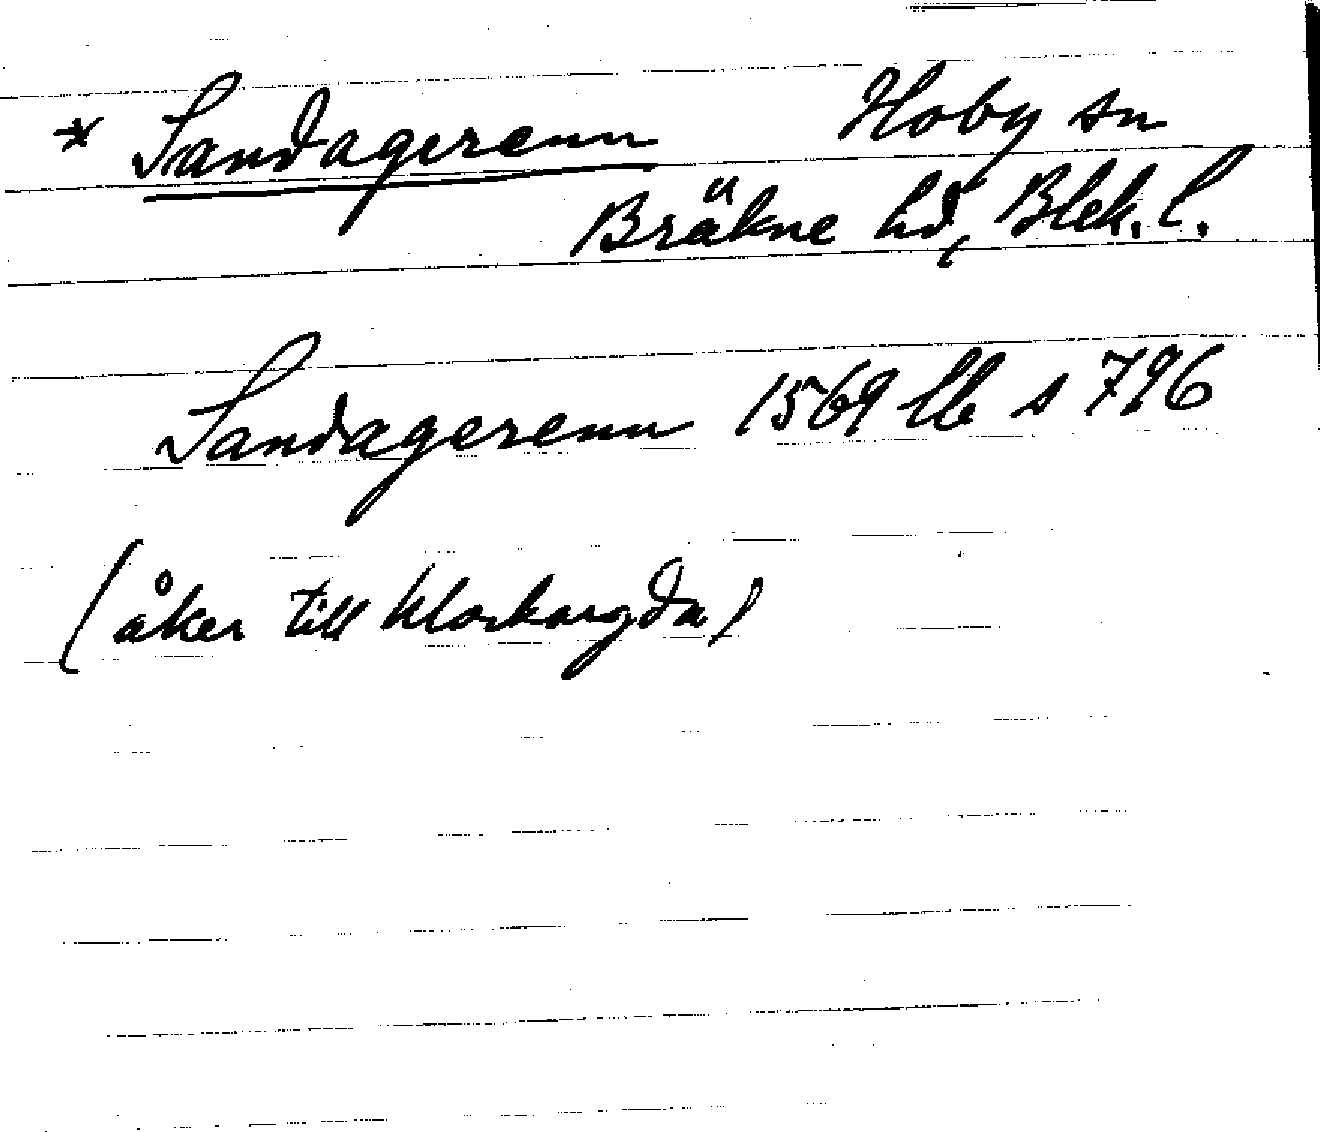 * Sandagerenn Hoby sn
Bräkne hd, Blek. l.
Sandagerenn 1569 lb s 796
(åker till klockargdn)